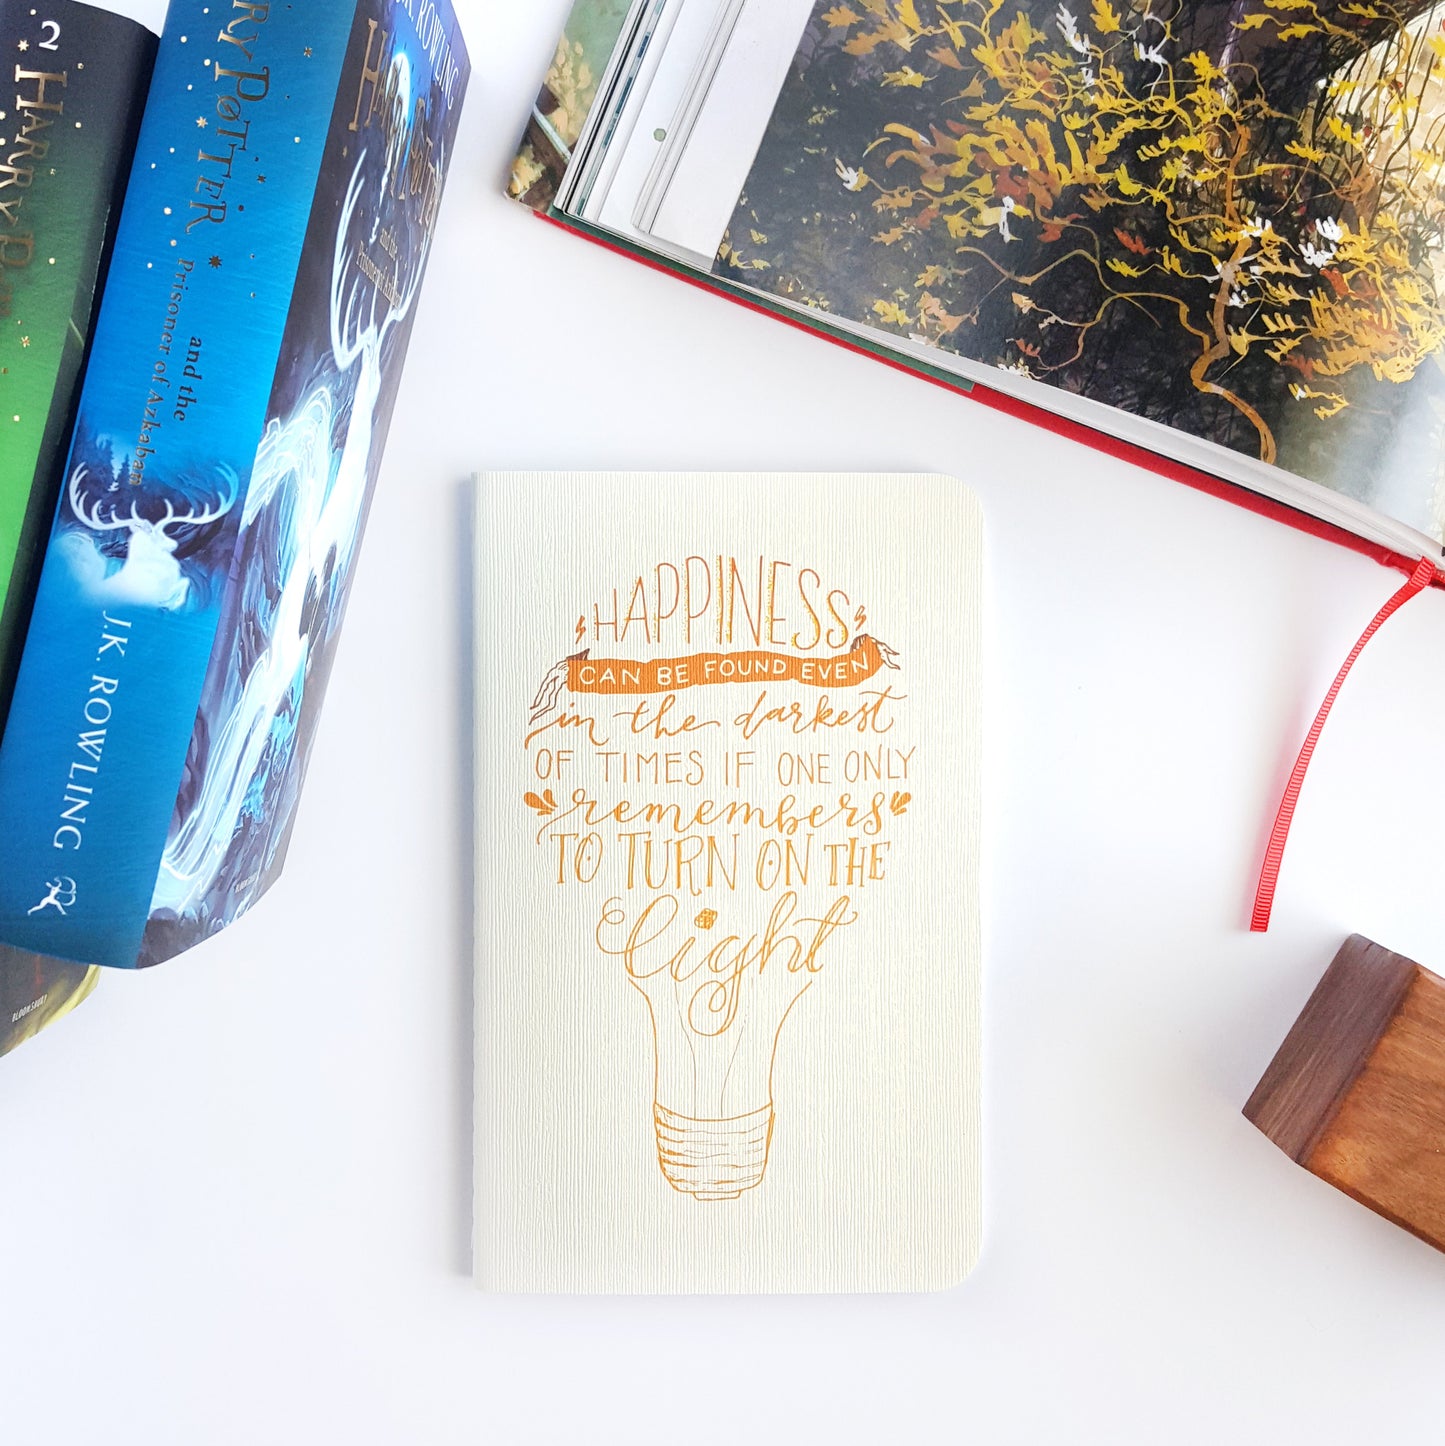 2 HARRY PO
HARRY POTTER
and the
Prisoner of Azkaban
J.K. ROWLING
J.K. ROWLING
and the
BLOOMSBURY
BLOOMSBURY
HAPPINESS
CAN BE FOUND EVEN
in the darkest
OF TIMES IF ONE ONLY
remembers
TO TURN ON THE
light